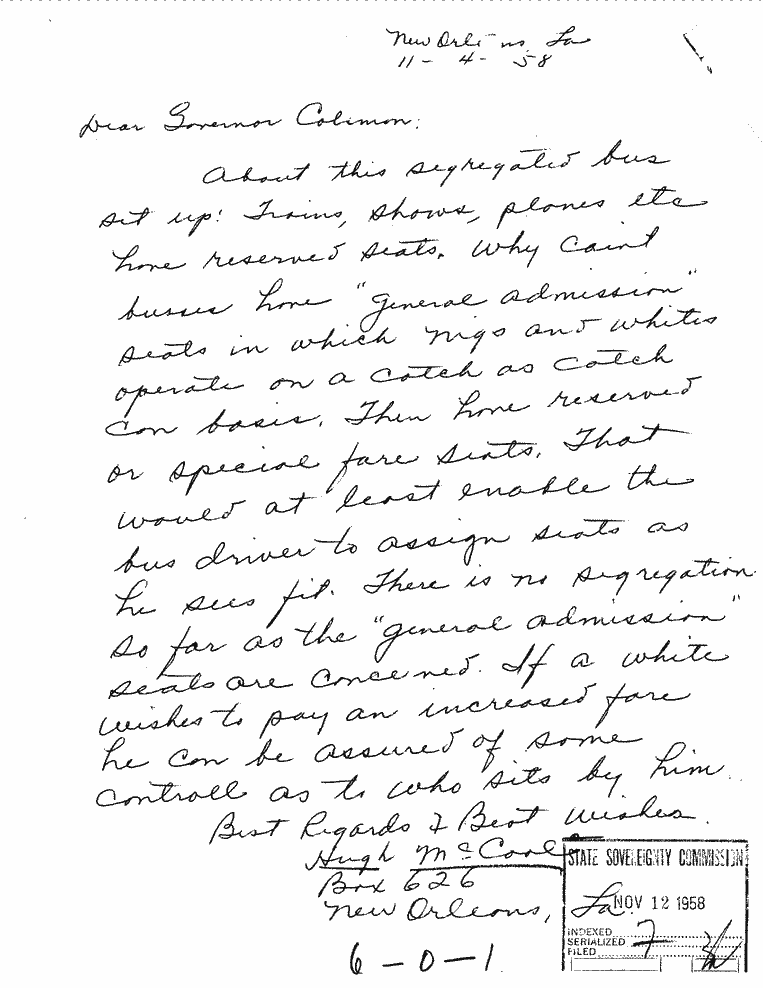 New Orleans, La
11 - 4 - 58
Dear Governor Colemon:
About this segregated bus
set up! Trains, shows, planes etc
have reserved seats. Why caint
busses have "general admission"
seats in which nigs and whites
operate on a catch as catch
can basis. Then have reserved
or special fare seats. That
would at least enable the
bus driver to assign seats as
he sees fit. There is no segregation
so far as the "general admission"
seats are concened. If a white
wishes to pay an increased fare
he can be assured of some
controll as to who sits by him.
Best Regards & Best Wishes.
Hugh McCool
Box 626
New Orleans, La.
STATE SOVEREIGNTY COMMISSION
NOV 12 1958
INDEXED
SERIALIZED 7
FILED
6-0-1